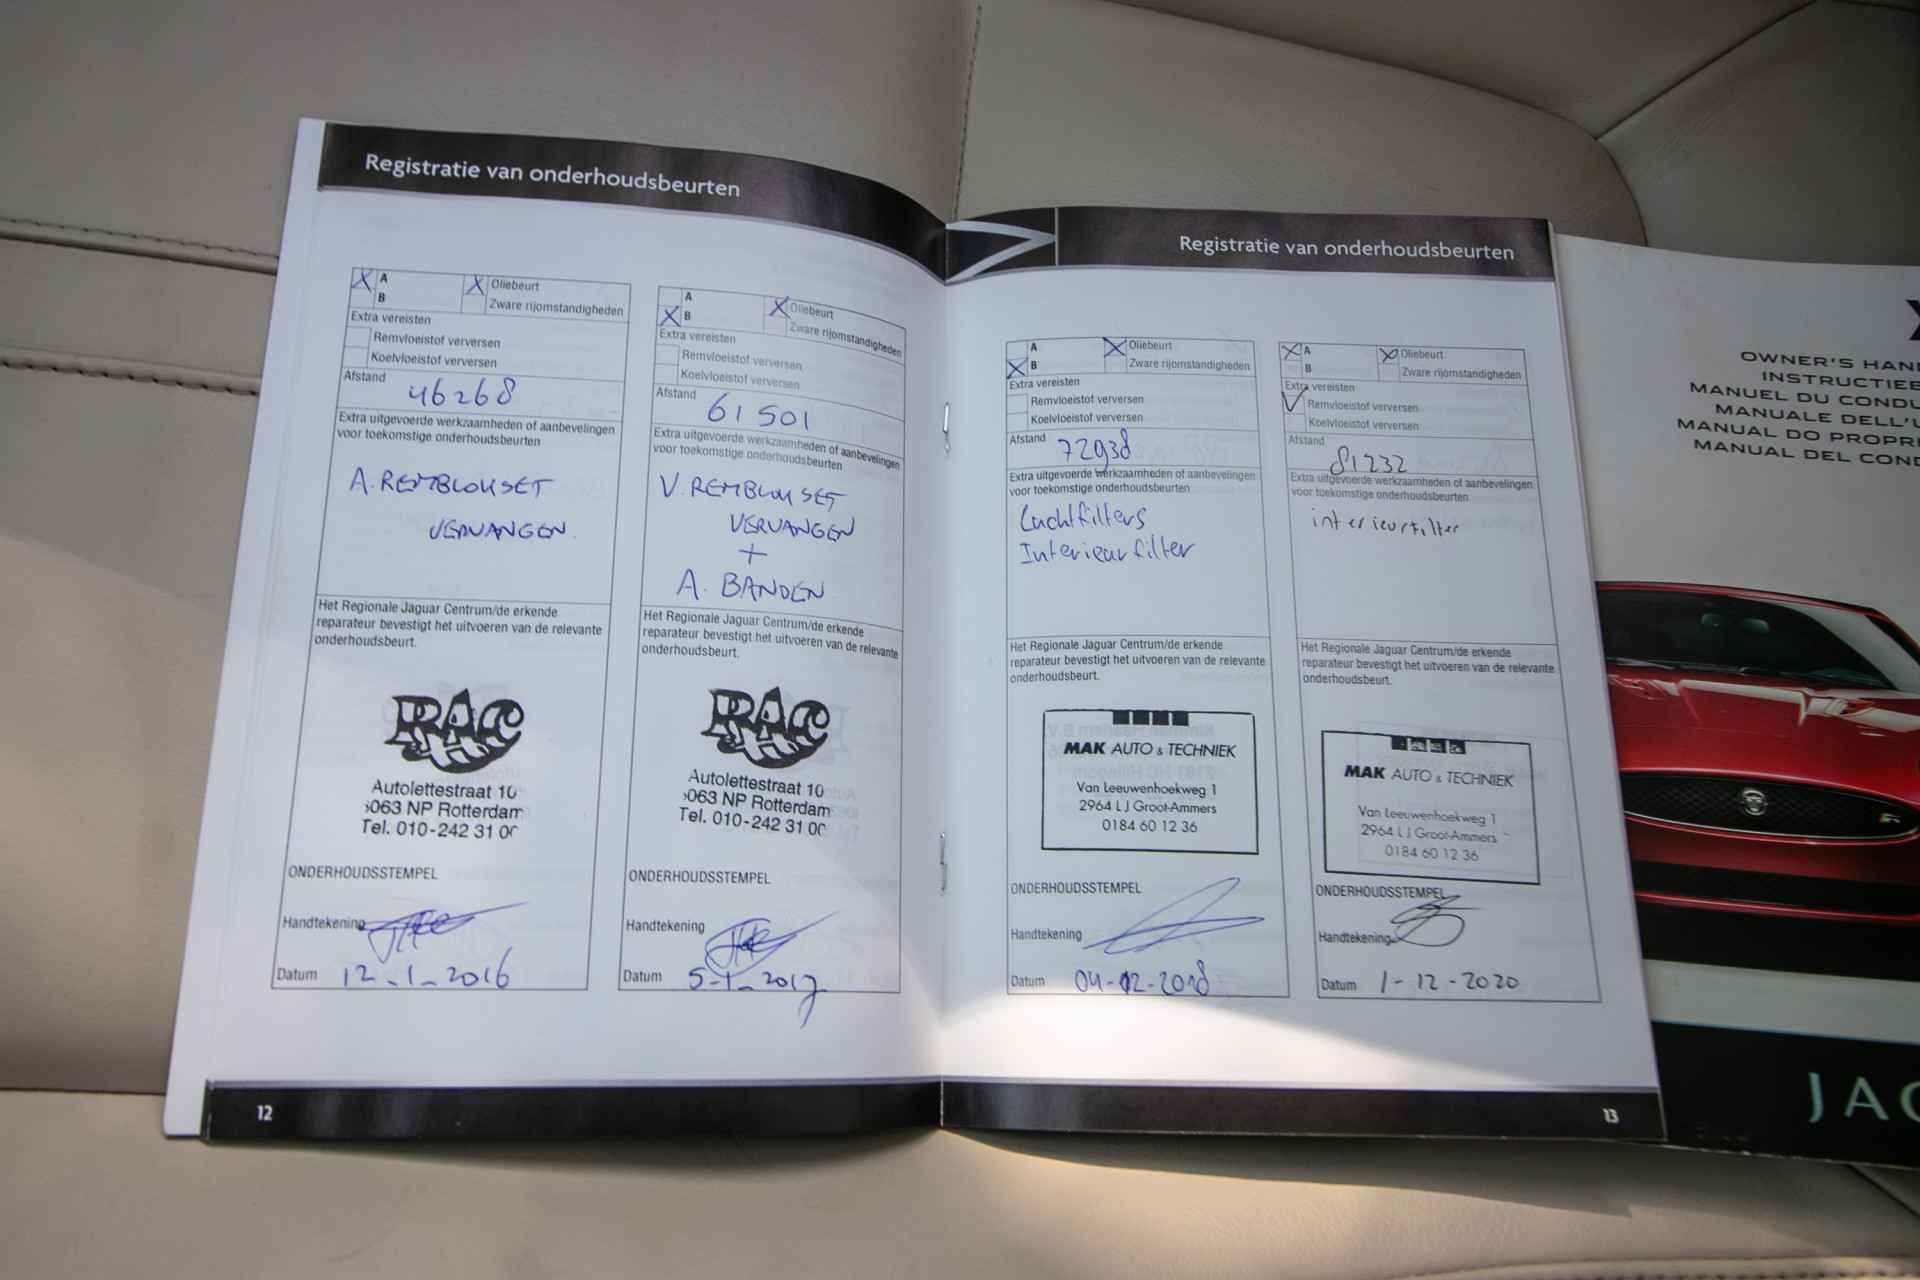 Registratie van onderhoudsbeurten
X A
B
X Oliebeurt
Zware rijomstandigheden
Extra vereisten
Remvloeistof verversen
Koelvloeistof verversen
Afstand
46268
Extra uitgevoerde werkzaamheden of aanbevelingen
voor toekomstige onderhoudsbeurten
A. REMBLOKSET
VERVANGEN.
Het Regionale Jaguar Centrum/de erkende
reparateur bevestigt het uitvoeren van de relevante
onderhoudsbeurt.
RAC
Autolettestraat 10
3063 NP Rotterdam
Tel. 010-242 31 00
ONDERHOUDSSTEMPEL
Handtekening
Datum 12-1-2016
A
X B
X Oliebeurt
Zware rijomstandigheden
Extra vereisten
Remvloeistof verversen
Koelvloeistof verversen
Afstand
61501
Extra uitgevoerde werkzaamheden of aanbevelingen
voor toekomstige onderhoudsbeurten
V. REMBLOKSET
VERVANGEN
+
A. BANDEN
Het Regionale Jaguar Centrum/de erkende
reparateur bevestigt het uitvoeren van de relevante
onderhoudsbeurt.
RAC
Autolettestraat 10
3063 NP Rotterdam
Tel. 010-242 31 00
ONDERHOUDSSTEMPEL
Handtekening
Datum 5-1-2017
12
Registratie van onderhoudsbeurten
A
X B
X Oliebeurt
Zware rijomstandigheden
Extra vereisten
Remvloeistof verversen
Koelvloeistof verversen
Afstand
72938
Extra uitgevoerde werkzaamheden of aanbevelingen
voor toekomstige onderhoudsbeurten
Luchtfilters
Interieurfilter
Het Regionale Jaguar Centrum/de erkende
reparateur bevestigt het uitvoeren van de relevante
onderhoudsbeurt.
MAK AUTO & TECHNIEK
Van Leeuwenhoekweg 1
2964 LJ Groot-Ammers
0184 60 12 36
ONDERHOUDSSTEMPEL
Handtekening
Datum 04-12-2018
X A
B
X Oliebeurt
Zware rijomstandigheden
Extra vereisten
Remvloeistof verversen
Koelvloeistof verversen
Afstand
81232
Extra uitgevoerde werkzaamheden of aanbevelingen
voor toekomstige onderhoudsbeurten
interieurfilter
Het Regionale Jaguar Centrum/de erkende
reparateur bevestigt het uitvoeren van de relevante
onderhoudsbeurt.
MAK AUTO & TECHNIEK
Van Leeuwenhoekweg 1
2964 LJ Groot-Ammers
0184 60 12 36
ONDERHOUDSSTEMPEL
Handtekening
Datum 1-12-2020
13
X
OWNER'S HAN
INSTRUCTIEB
MANUEL DU CONDU
MANUALE DELL'U
MANUAL DO PROPRI
MANUAL DEL COND
JAG